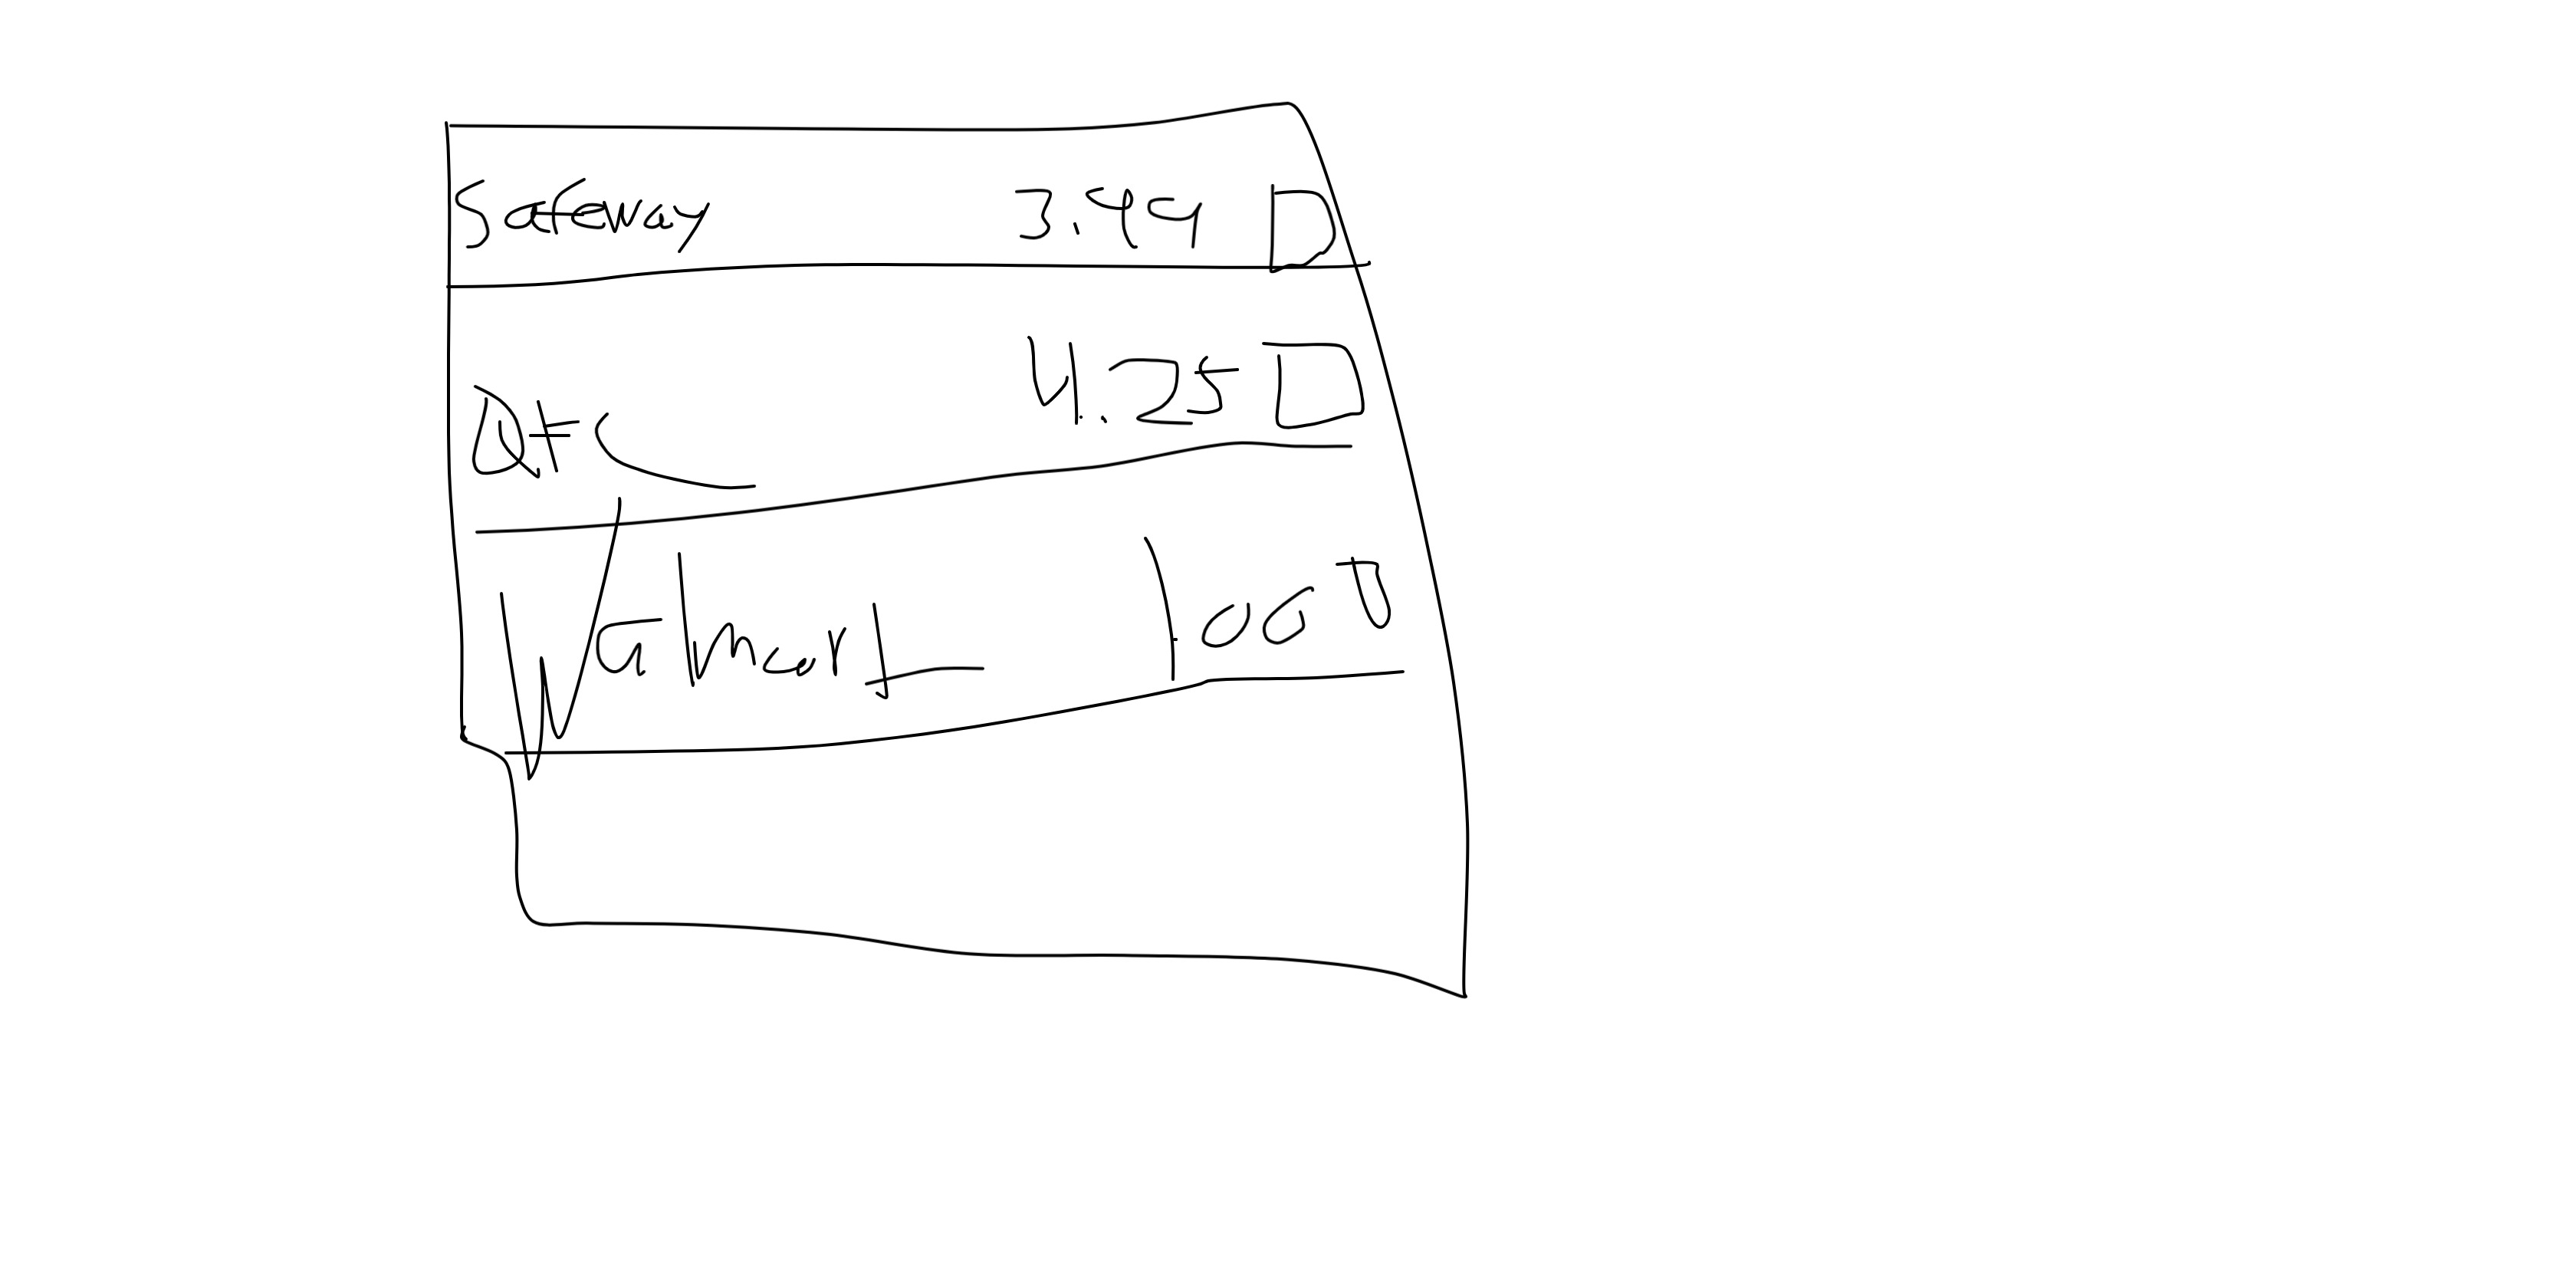 Safeway 3.99
Qfc 4.25
Walmart 1.00